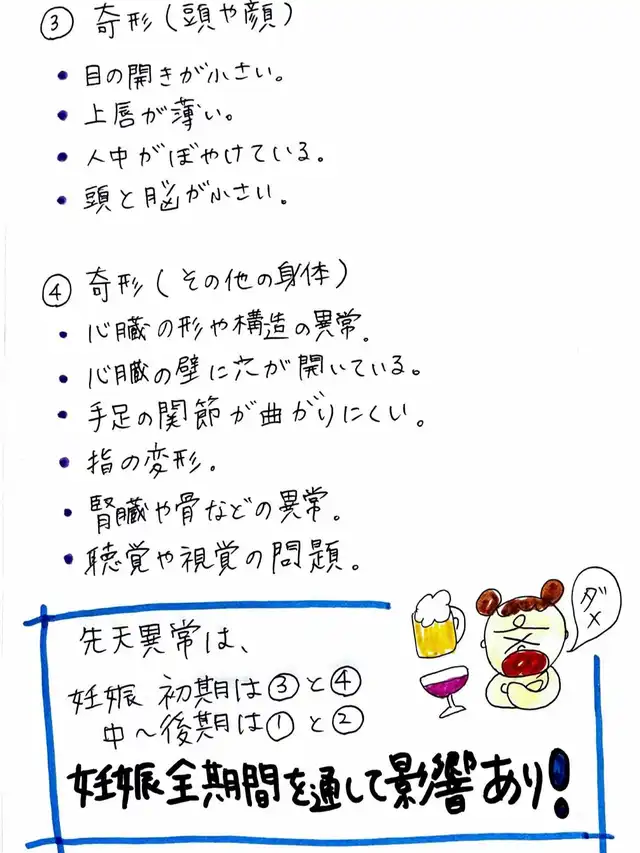 ③ 奇形(頭や顔)
• 目の開きが小さい。
• 上唇が薄い。
• 人中がぼやけている。
• 頭と脳が小さい。
④ 奇形(その他の身体)
• 心臓の形や構造の異常。
• 心臓の壁に穴が開いている。
• 手足の関節が曲がりにくい。
• 指の変形。
• 腎臓や骨などの異常。
• 聴覚や視覚の問題。
ダメ
先天異常は、
妊娠 初期は③と④
中〜後期は①と②
妊娠全期間を通して影響あり!